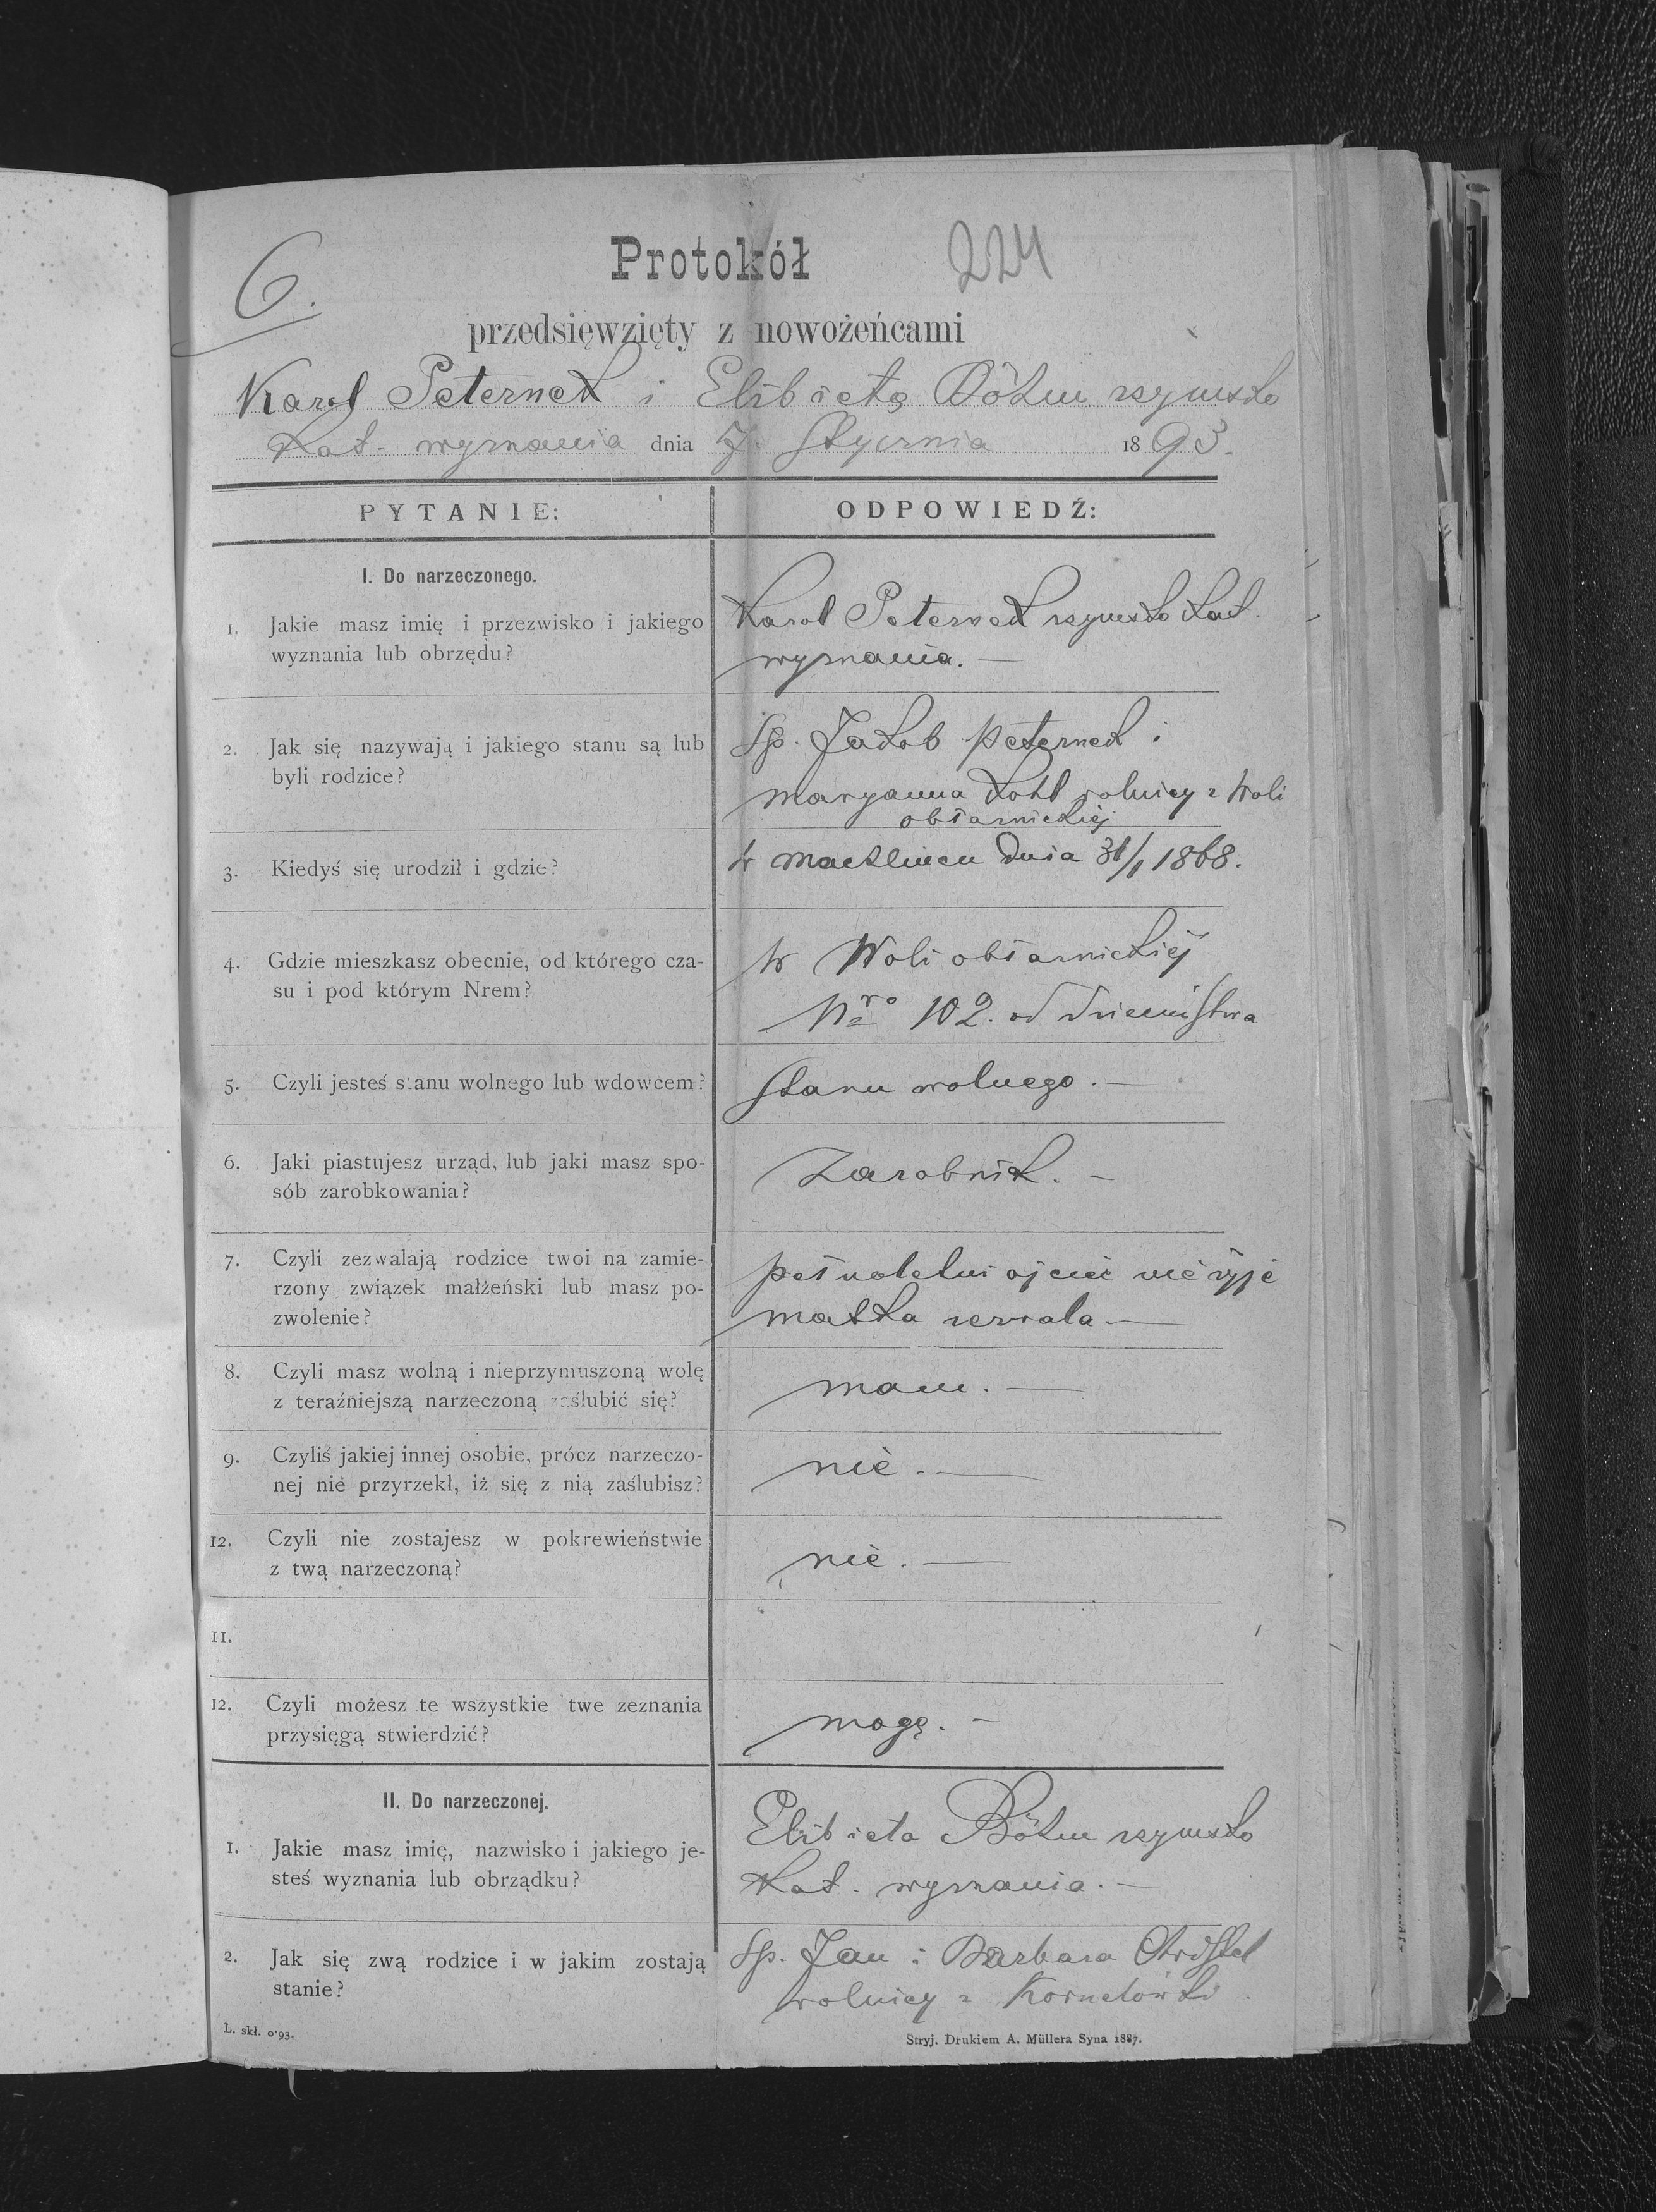 6.
Protokół
224
przedsięwzięty z nowożeńcami
Karol Peternek i Elżbietą Böhm rzymsko
kat. wyznania dnia 7. Stycznia 1893.
PYTANIE:
ODPOWIEDŹ:
I. Do narzeczonego.
1. Jakie masz imię i przezwisko i jakiego
wyznania lub obrzędu?
Karol Peternek rzymsko kat.
wyznania. —
2. Jak się nazywają i jakiego stanu są lub
byli rodzice?
Sp. Jakob Peternek i
Maryanna Kohl rolnicy z Woli
obłaznickiej
3. Kiedyś się urodził i gdzie?
w Machlincu dnia 31/1 1868.
4. Gdzie mieszkasz obecnie, od którego cza-
su i pod którym Nrem?
w Woli obłaznickiej
Nro 102. od dzieciństwa
5. Czyli jesteś stanu wolnego lub wdowcem?
Stanu wolnego. —
6. Jaki piastujesz urząd, lub jaki masz spo-
sób zarobkowania?
Zarobnik. —
7. Czyli zezwalają rodzice twoi na zamie-
rzony związek małżeński lub masz po-
zwolenie?
pełnoletni ojciec nie żyje
matka zezwala —
8. Czyli masz wolną i nieprzymuszoną wolę
z teraźniejszą narzeczoną zaślubić się?
mam. —
9. Czyliś jakiej innej osobie, prócz narzeczo-
nej nie przyrzekł, iż się z nią zaślubisz?
nie. —
12. Czyli nie zostajesz w pokrewieństwie
z twą narzeczoną?
nie. —
11.
12. Czyli możesz te wszystkie twe zeznania
przysięgą stwierdzić?
mogę. —
II. Do narzeczonej.
1. Jakie masz imię, nazwisko i jakiego je-
steś wyznania lub obrządku?
Elżbieta Böhm rzymsko
kat. wyznania. —
2. Jak się zwą rodzice i w jakim zostają
stanie?
Sp. Jan i Barbara Christel
rolnicy z Kornelówki.
L. skł. 0·93.
Stryj. Drukiem A. Müllera Syna 1887.